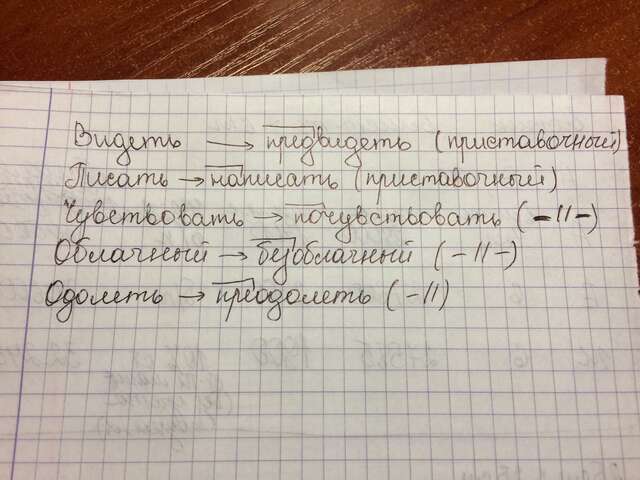 Видеть → предвидеть (приставочный)
Писать → написать (приставочный)
Чувствовать → почувствовать (-//-)
Облачный → безоблачный (-//-)
Одолеть → преодолеть (-//)